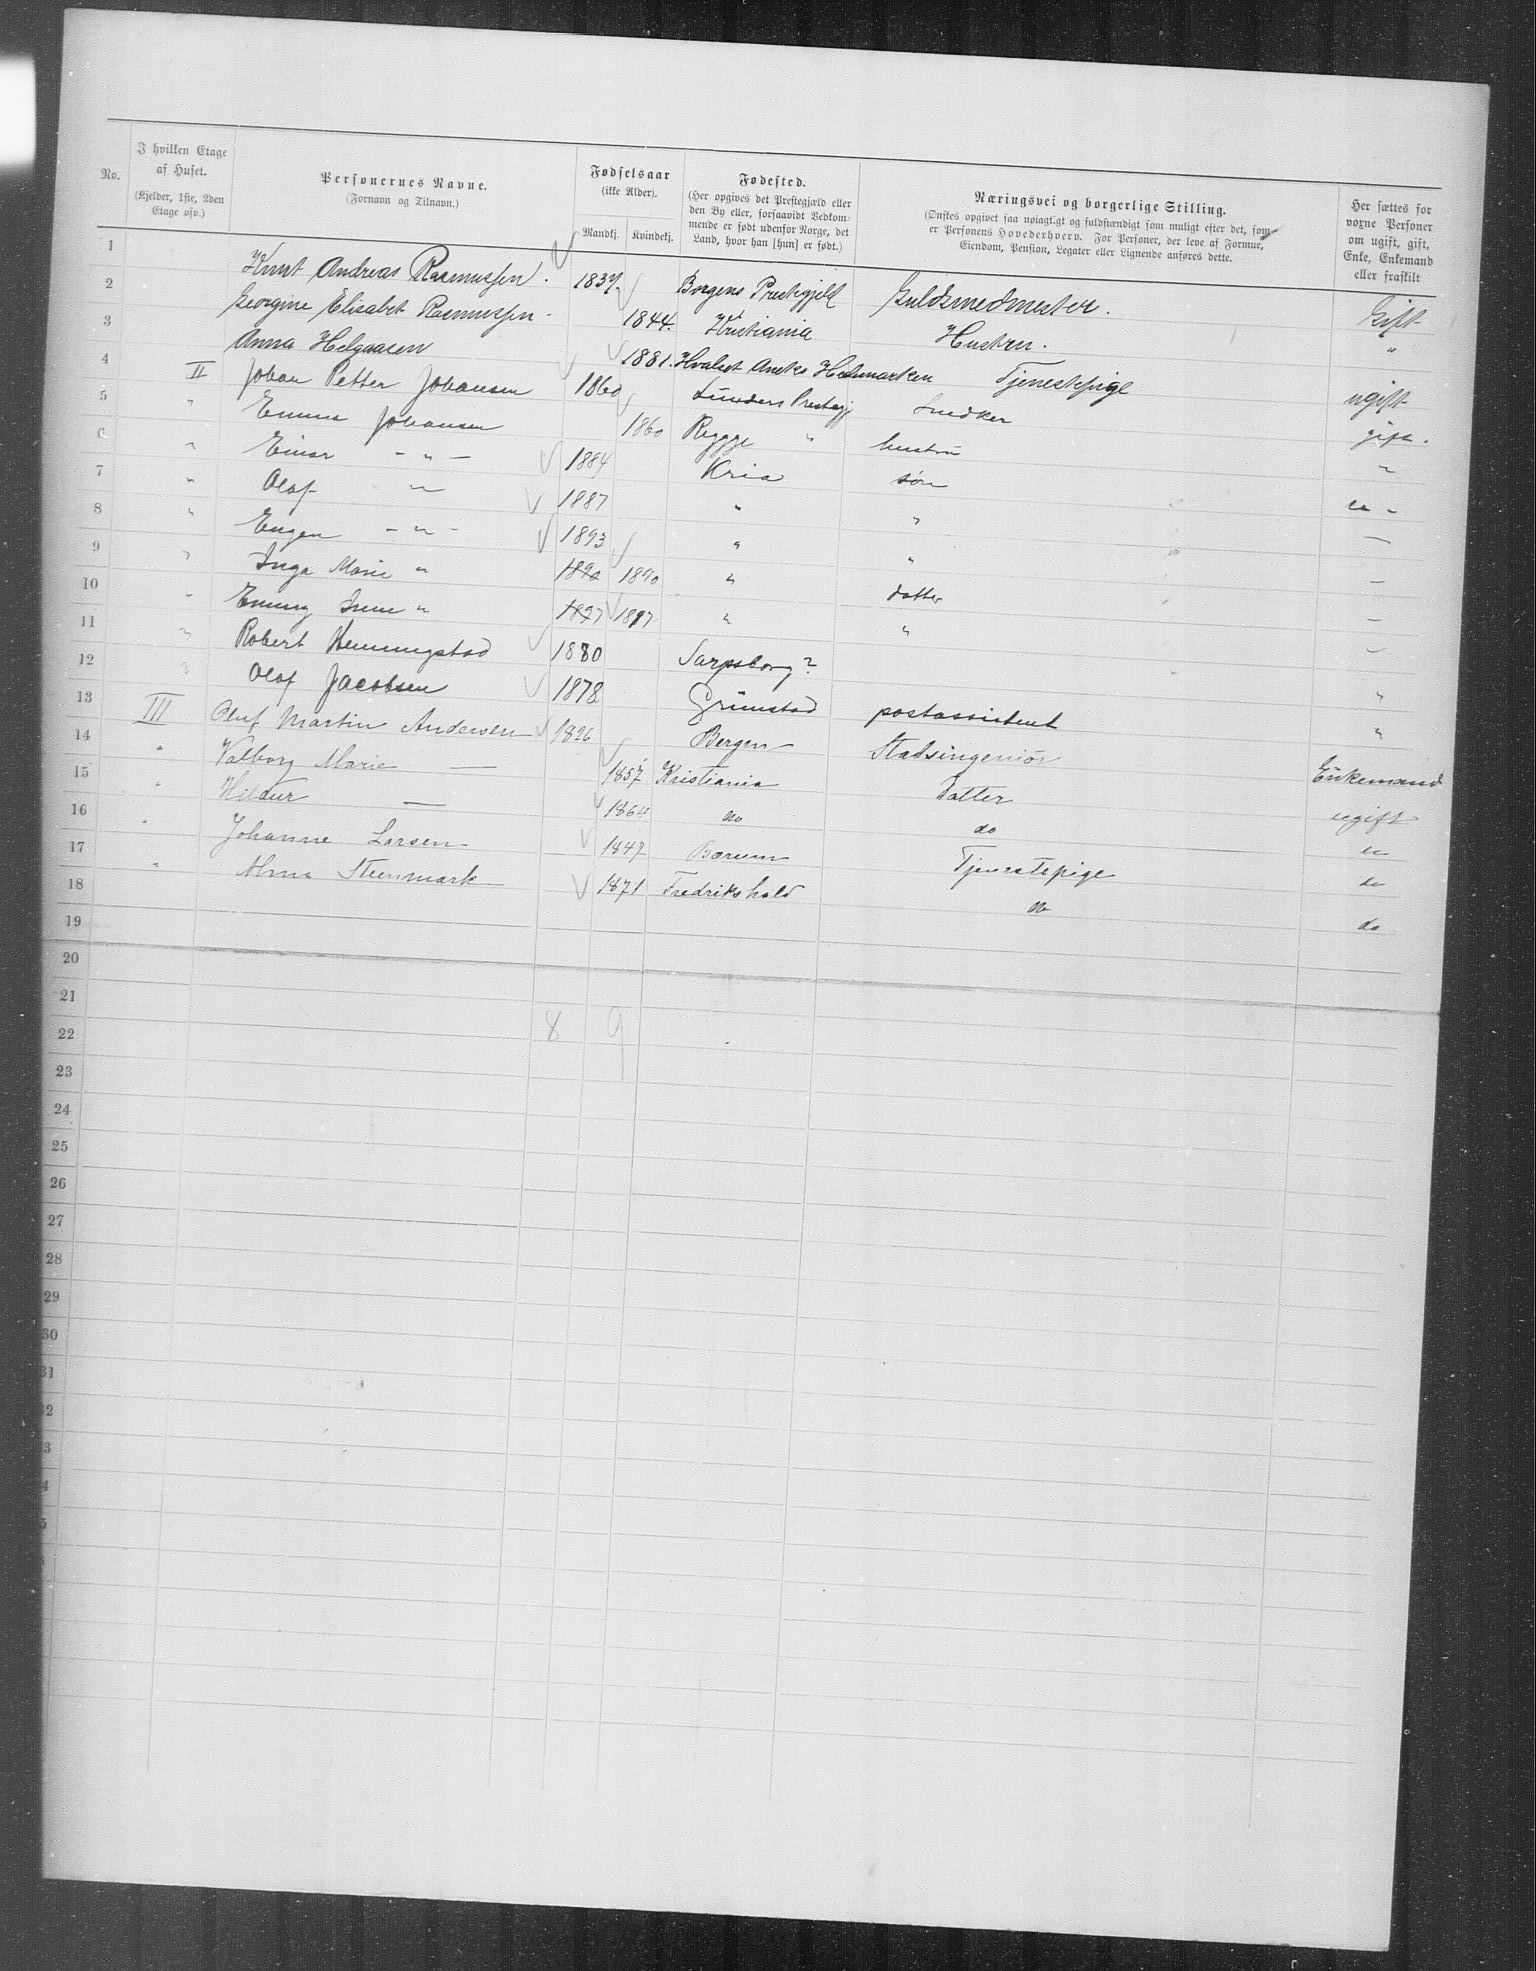 No.
I hvilken Etage af Huset. (Kjelder, 1ste, 2den Etage osv.)
Personernes Navne. (Fornavn og Tilnavn.)
Fødselsaar (ikke Alder).
Mandkj. Kvindekj.
Fødested. (Her opgives det Prestegjæld eller den By eller, forsaavidt Vedkommende er født udenfor Norge, det Land, hvor han [hun] er født.)
Næringsvei og borgerlige Stilling. (Ønskes opgivet saa nøiagtigt og fuldstændigt som muligt efter det, som er Personens Hovederhverv. For Personer, der leve af Formue, Eiendom, Pension, Legater eller Lignende anføres dette.
Her sættes for voxne Personer om ugift, gift, Enke, Enkemand eller fraskilt
1 Knut Andreas Rasmussen. 1837. Borgens Prestegjeld Guldsmedmester. Gift
2 Georgine Elisabet Rasmussen. 1844. Kristiania Hustru. "
3 Anna Helgaasen 1881. Hedemarken Tjenestepige ugift
4 II Johan Petter Johansen 1860 Prestegj Snedker gift.
5 " Emma Johansen 1860 Rygge " hustru "
6 " Einar - " - 1884 Kria søn
7 " Olaf " 1887 " "
8 " Eugen - " - 1893 " " —
9 " Inga Marie " 1890 1890 " datter —
10 " Emmy " 1897 1897 " " —
11 " Robert Henningstad 1880 Sarpsborg? "
12 " Olaf Jacobsen 1878 Grimstad postassistent "
13 III Oluf Martin Andersen 1826 Bergen Stadsingeniør Enkemand
14 " Valborg Marie — 1857 Kristiania Datter ugift
15 " Hildur — 1864 do do
16 " Johanne Larsen 1847 Bærum Tjenestepige do
17 " Alma Steenmark 1871 Fredrikshald do do
18
19
20
21
22 8 9
23
24
25
26
27
28
29
30
31
32
3
4
5